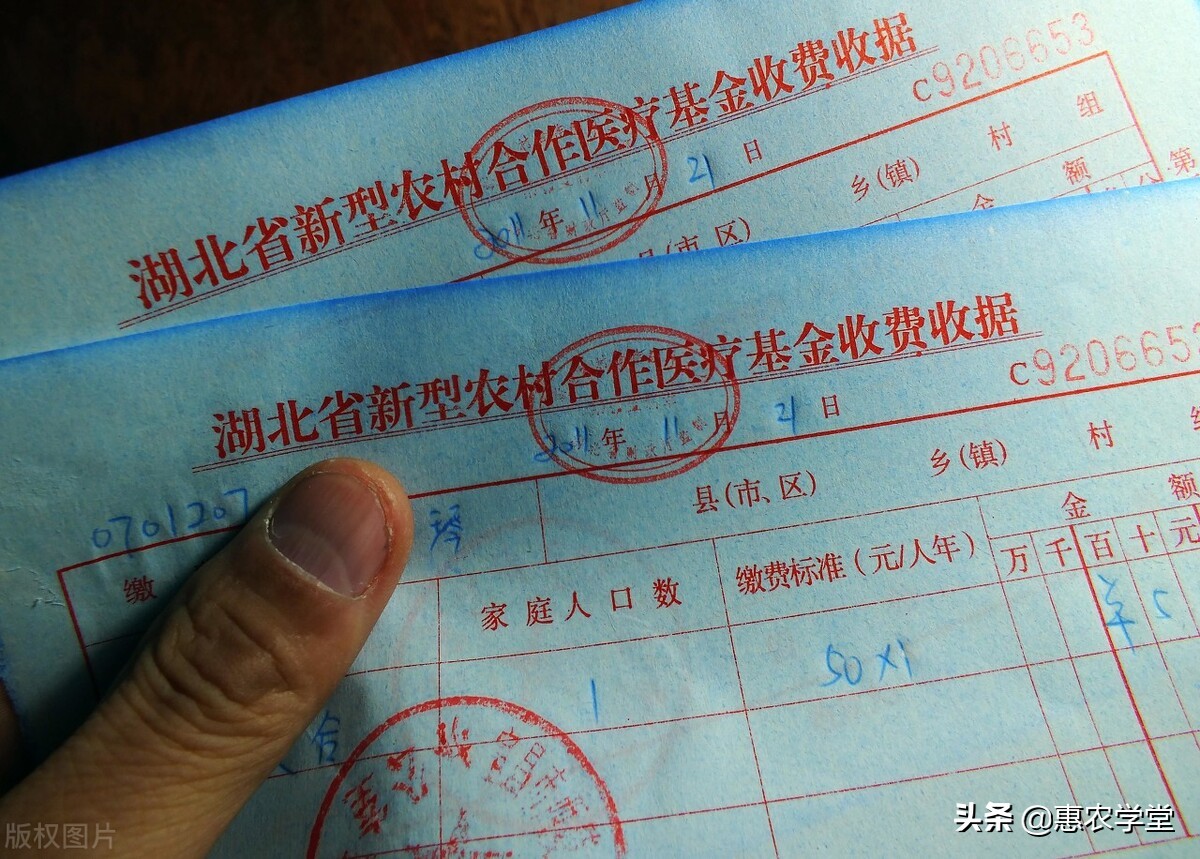 湖北省新型农村合作医疗基金收费收据
c9206653
2011年11月21日
乡(镇) 村 组
县(市、区)
金 额
第
湖北省新型农村合作医疗基金收费收据
c920665
2011年11月21日
0701207
琴 县(市、区) 乡(镇) 村
缴 家庭人口数 缴费标准(元/人年) 金 额
万 千 百 十 元
1 50×1 羊 5
合
版权图片
头条 @惠农学堂